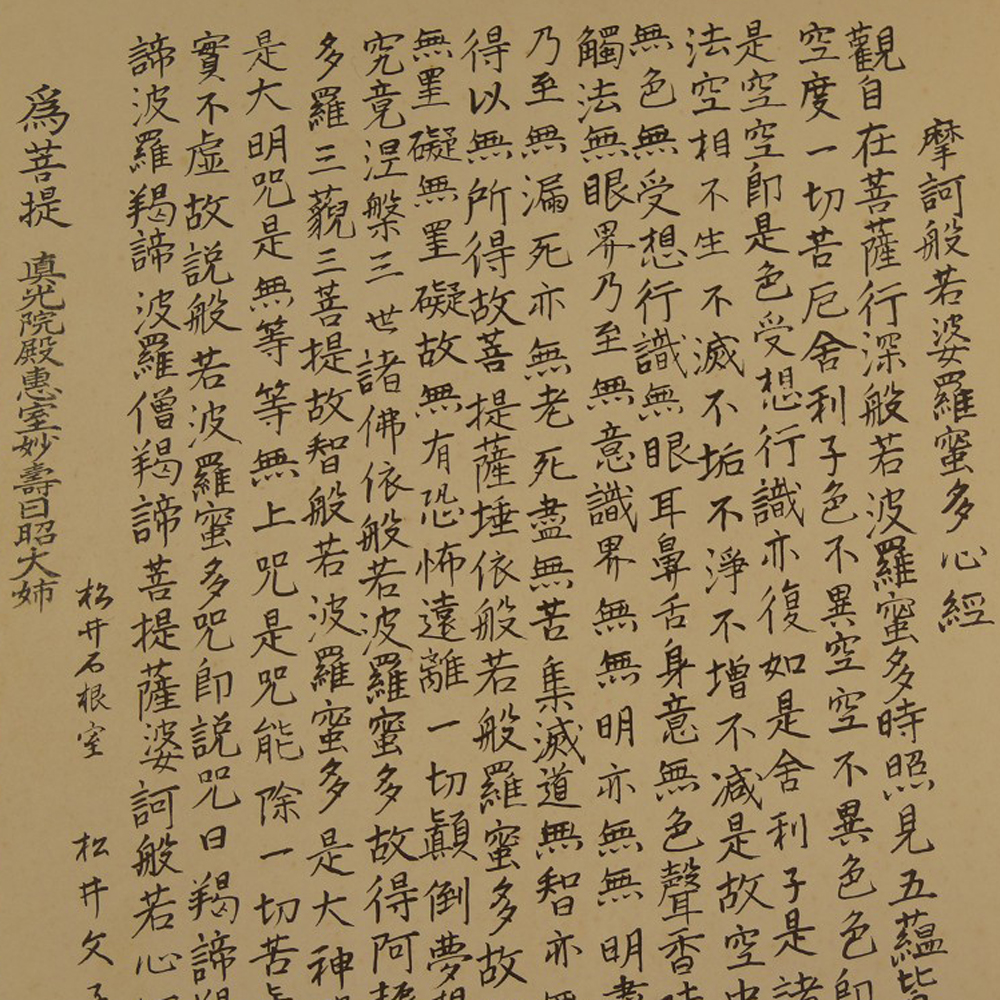 摩訶般若婆羅蜜多心經
觀自在菩薩行深般若波羅蜜多時照見五蘊皆
空度一切苦厄舍利子色不異空空不異色色即
是空空即是色受想行識亦復如是舍利子是諸
法空相不生不滅不垢不淨不增不減是故空中
無色無受想行識無眼耳鼻舌身意無色聲香
觸法無眼界乃至無意識界無無明亦無無明盡
乃至無漏死亦無老死盡無苦集滅道無智亦無
得以無所得故菩提薩埵依般若般羅蜜多故
無罣礙無罣礙故無有恐怖遠離一切顛倒夢想
究竟涅槃三世諸佛依般若波羅蜜多故得阿耨
多羅三藐三菩提故智般若波羅蜜多是大神
是大明咒是無等等無上咒是咒能除一切苦
實不虛故説般若波羅蜜多咒即説咒曰羯諦羯
諦波羅羯諦波羅僧羯諦菩提薩婆訶般若心
松井石根室 松井文子
爲菩提 真光院殿惠室妙壽日昭大姉